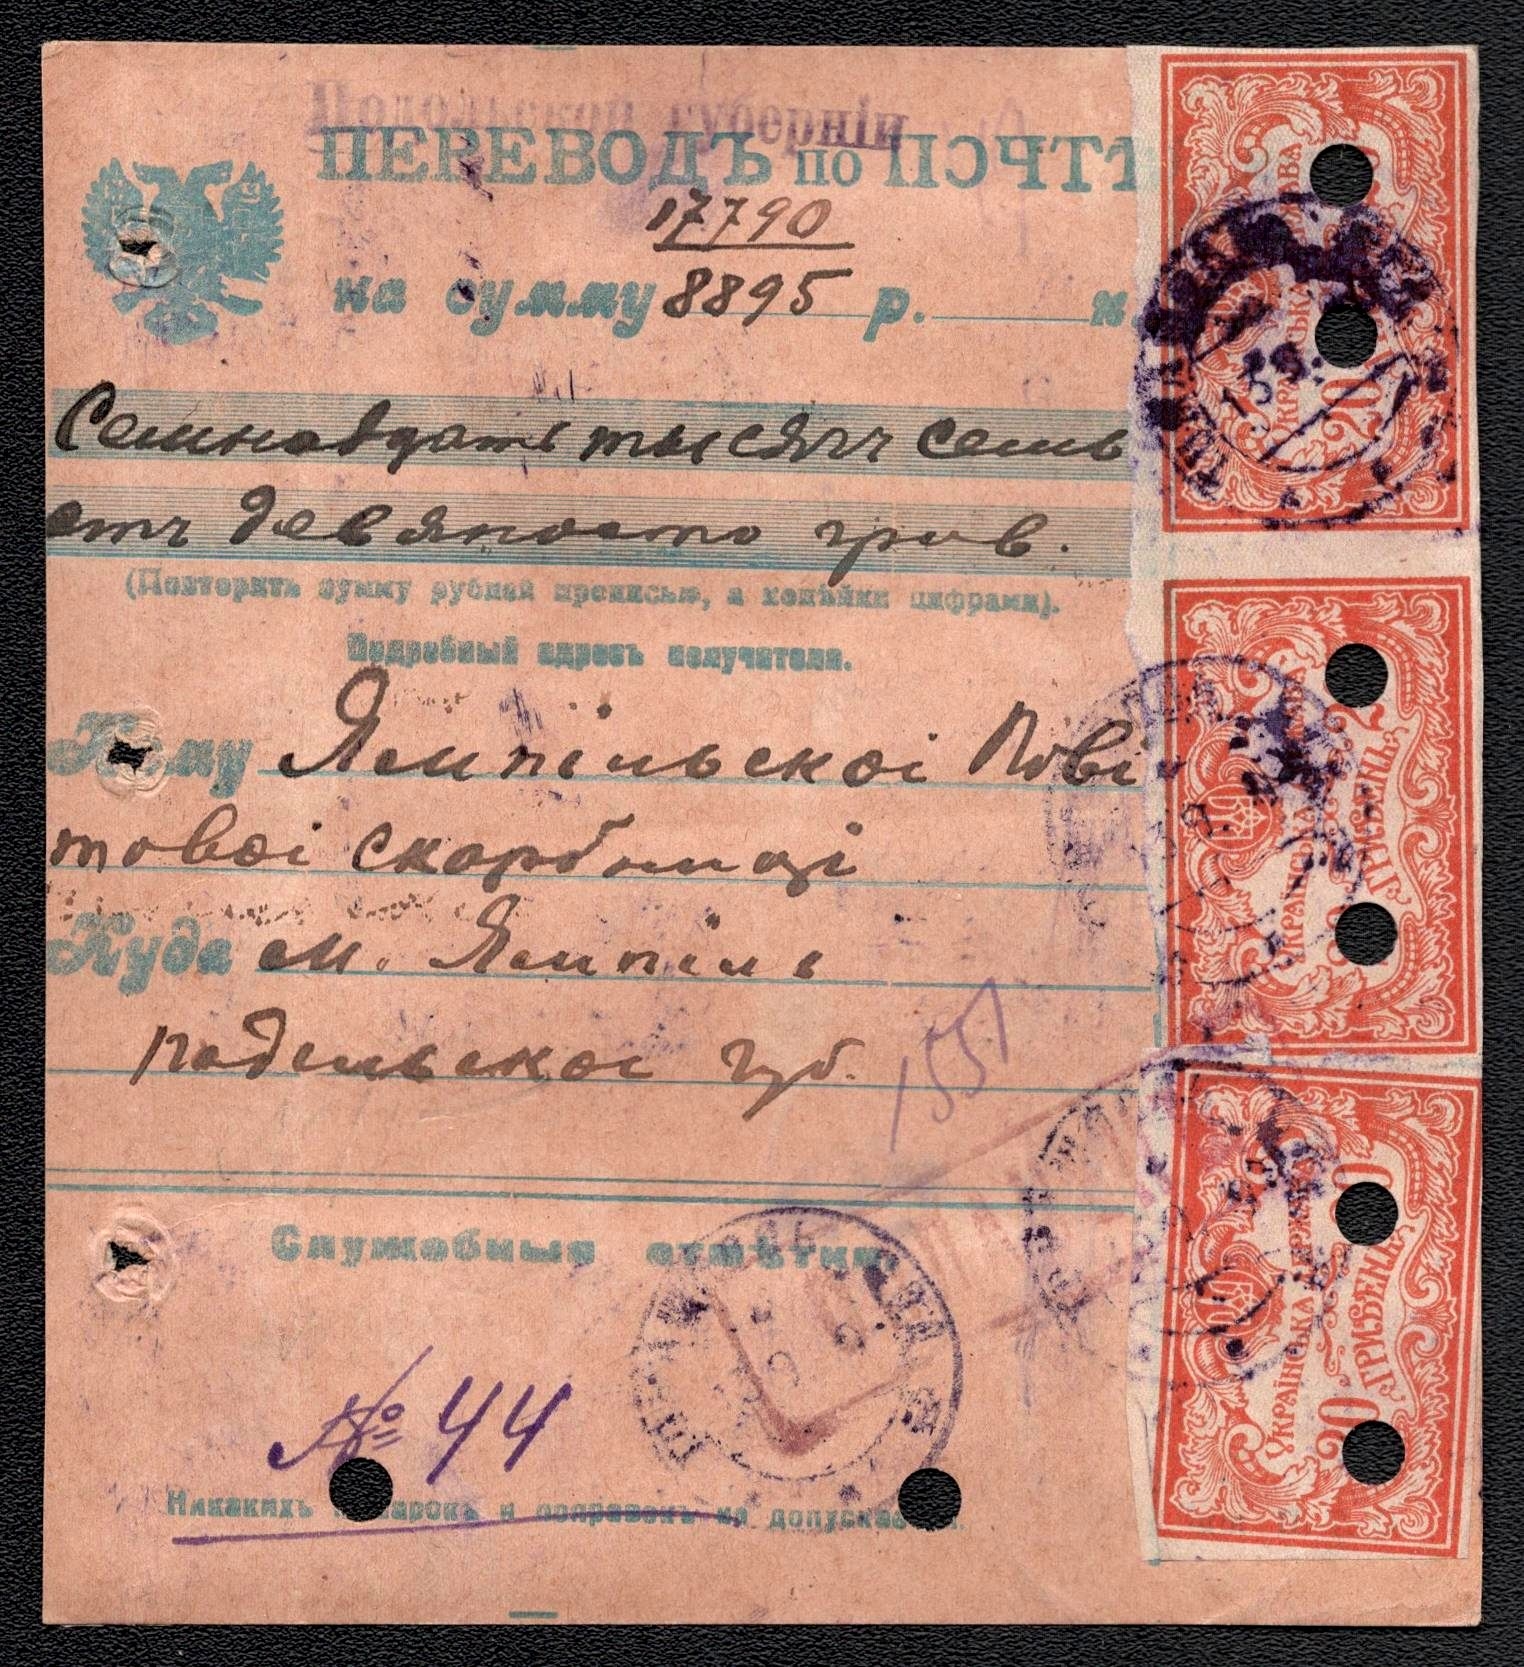 Подольской губерніи
ПЕРЕВОДЪ по ПОЧТѢ
17790
на сумму 8895 р. к.
Семнадцать тысячъ семь
стъ девяносто грив.
(Повторить сумму рублей прописью, а копѣйки цифрами).
Подробный адресъ получателя.
Кому Ямпільскоі Пові
товоі скарбниці
Куда м. Ямпіль
Подільскоі губ.
1551
Служебныя отмѣтки.
№ 44
Никакихъ помарокъ и поправокъ не допускается.
УКРАЇНСЬКА ДЕРЖАВА
20
УКРАЇНСЬКА ДЕРЖАВА
20 ГРИВЕНЬ 20
УКРАЇНСЬКА ДЕРЖАВА
20 ГРИВЕНЬ 20